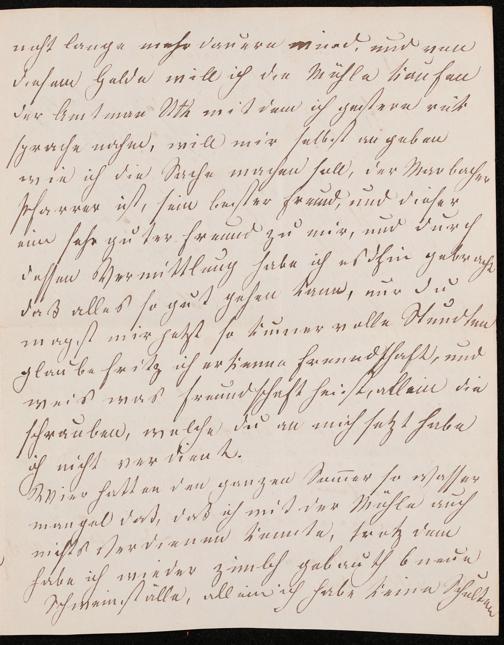 nicht lange mehr dauern wierd, und von
diesem Gelde will ich die Mühle kaufen
der Amtman Utz mit dem ich gestern rük
sprache nahm, will mir selbst angeben
wie ich die Sache machen soll, der Marbacher
Pfarrer ist, sein bester Freund, und dieser
ein sehr guter Freund zu mir, und durch
dessen Vermittlung habe ich es dhin gebracht
daß alles so gut gehen kann, nur du
magst mir jetzt so kumervolle Stundten
glaube Fritz ich erkenne Freundschaft, und
weis was freundschaft heist, allein die
schrauben, welche du an mich setzt habe
ich nicht verdient.
Wier hatten den ganzen Sommer so wasser
mangel daß, daß ich mit der Mühle auch
nichts verdienen konnte, trotz dem
habe ich wieder zimlch gebauth 6 neue
Schweinställe, allein ich habe keine Schulden